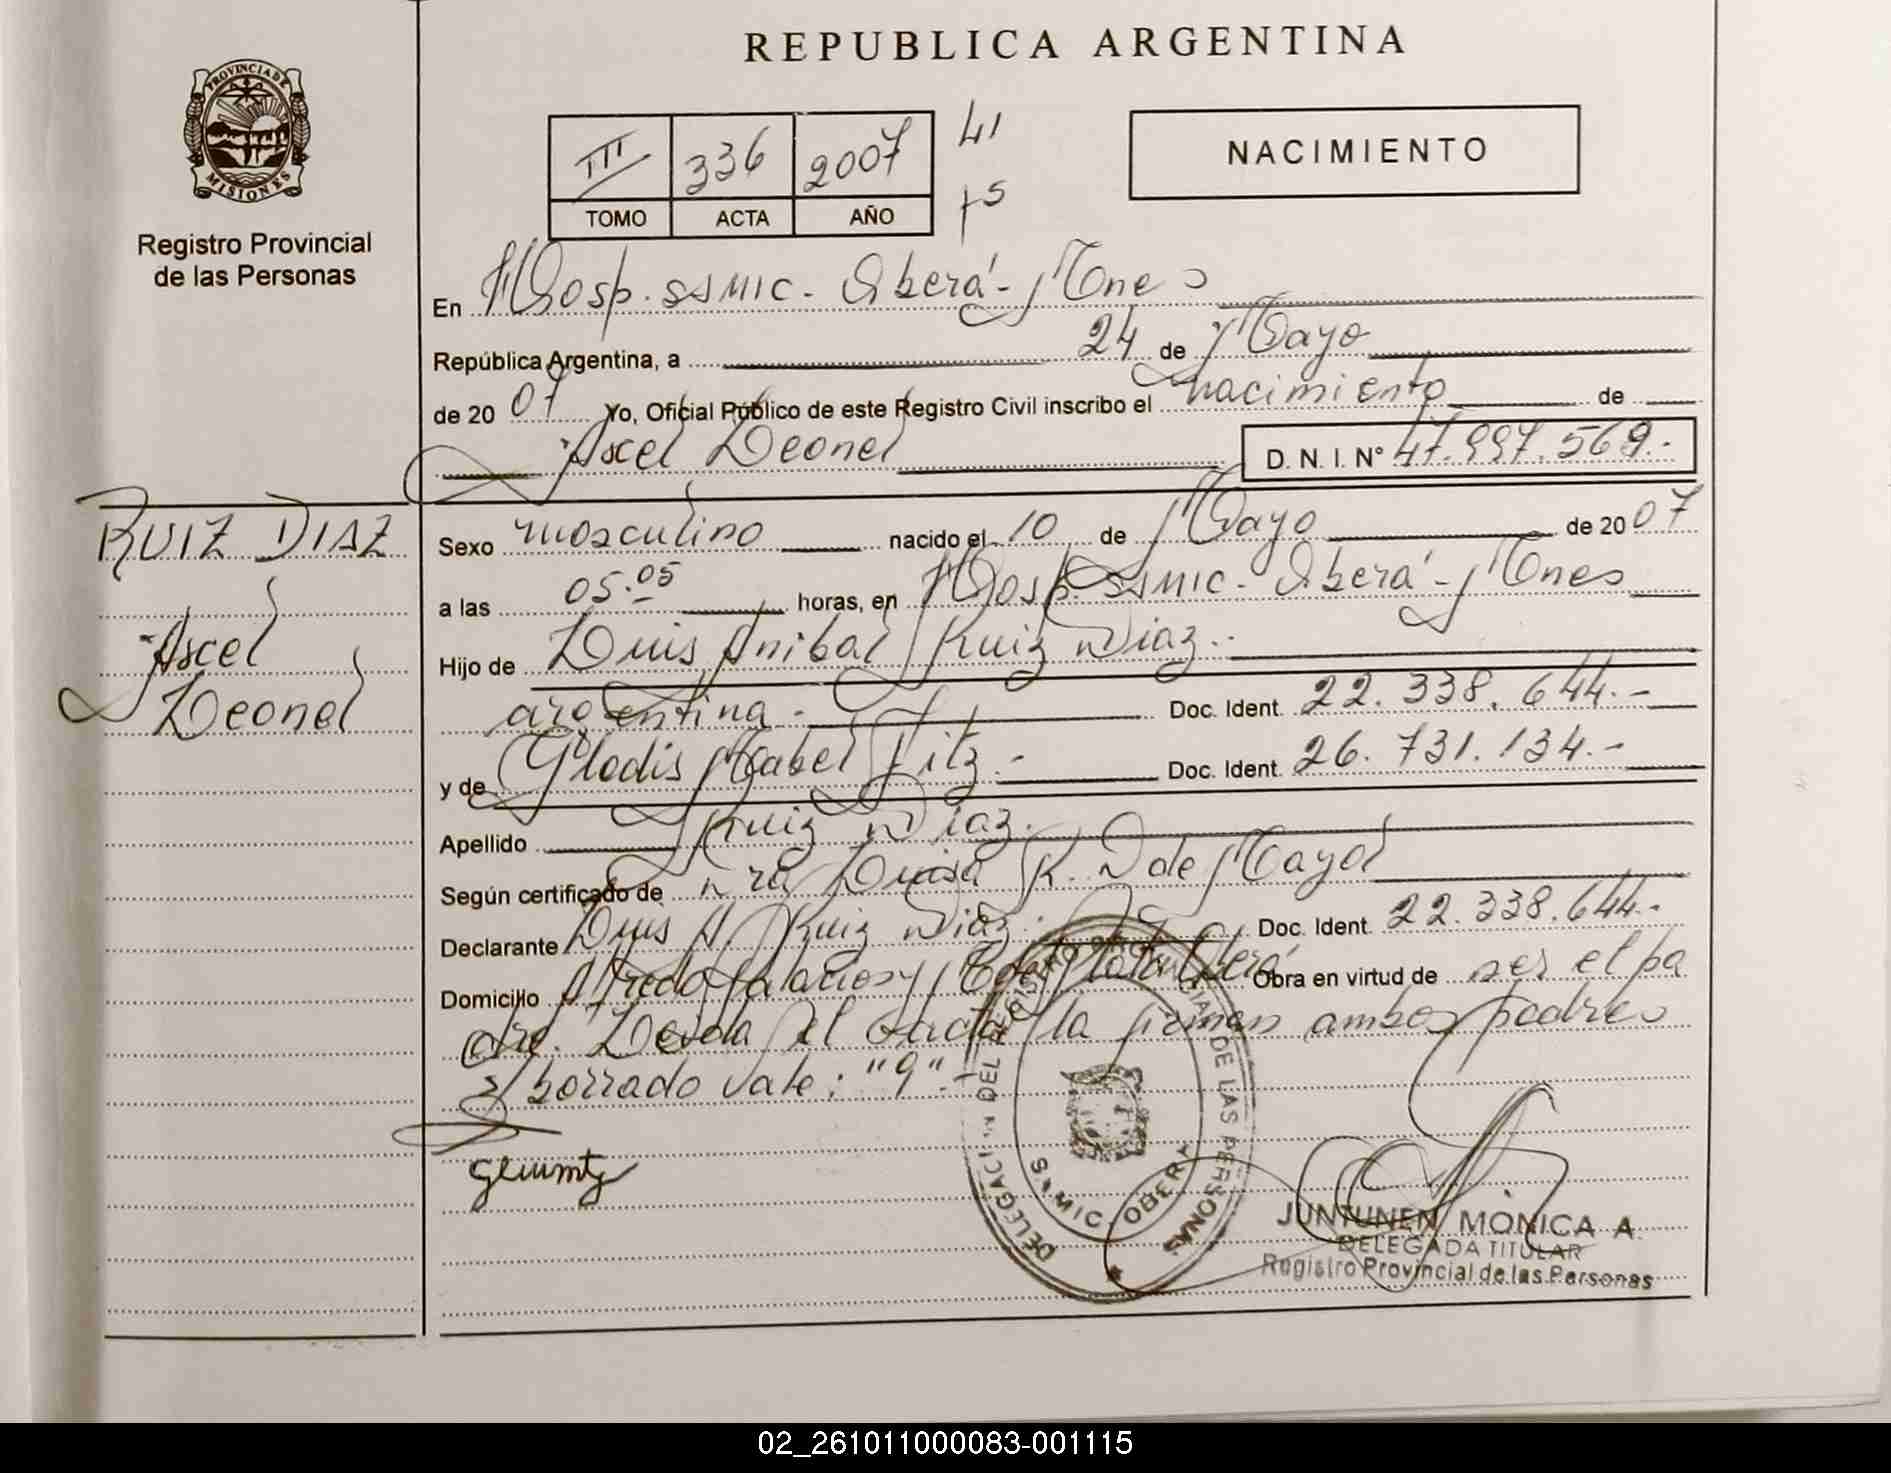 REPUBLICA ARGENTINA
PROVINCIA DE
MISIONES
Registro Provincial
de las Personas
III 336 2007
TOMO ACTA AÑO
41
75
NACIMIENTO
En Hosp. SSMIC - Oberá - Mnes
República Argentina, a 24 de Mayo
de 20 07 Yo, Oficial Público de este Registro Civil inscribo el nacimiento de
Axcel Leonel
D. N. I. Nº 47.997.569.-
RUIZ DIAZ
Axcel
Leonel
Sexo masculino nacido el 10 de Mayo de 20 07
a las 05.05 horas, en Hosp. SSMIC - Oberá - Mnes
Hijo de Luis Anibal Ruiz Diaz.-
argentina.- Doc. Ident. 22.338.644.-
y de Gladis Mabel Fitz.- Doc. Ident. 26.731.134.-
Apellido Ruiz Diaz.
Según certificado de Dra Luisa K. D de Mayol
Declarante Luis A. Ruiz Diaz. Doc. Ident. 22.338.644.-
Domicilio Alfredo Palacios y Oberá Obra en virtud de ser el pa
dre. Leida el acta la firman ambos padres
S/borrado vale: "9".-
DELEGACION DEL REGISTRO PROVINCIAL DE LAS PERSONAS
OBERA
JUNTUNEN MONICA A.
DELEGADA TITULAR
Registro Provincial de las Personas
02_261011000083-001115